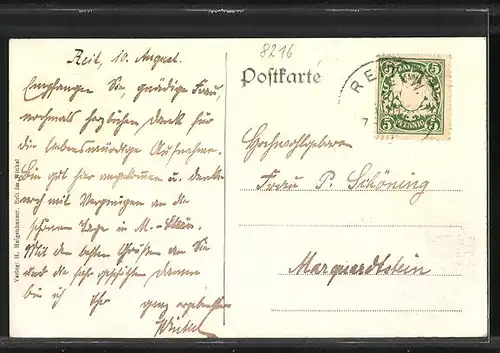 8216
Postkarte
REIT
5 5
5 PFENNIG 5
Reit, 10. August.
Empfangen Sie, gnädige Frau,
nochmals herzlichen Dank für
die liebenswürdige Aufnahme.
Bin gut hier angekommen u. denke
noch mit Vergnügen an die
schönen Tage in M.-stein.
Mit den besten Grüßen an Sie
und die sehr geschätzten Damen
bin ich Ihr
ganz ergebenster
Hochwohlgeboren
Frau P. Schöning
Marquardtstein
Verlag: H. Heigenhauser, Reit im Winkel